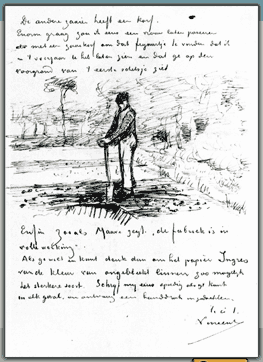 De andere zaaier heeft een korf.
Enorm graag zou ik eens een vrouw laten poseeren
met een zaaikorf om dat figuurtje te vinden dat ik
u 't voorjaar heb laten zien en dat ge op den
voorgrond van 't eerste schetsje ziet
Enfin zooals Mauve zegt, de fabriek is in
volle werking.
Als ge wil en kunt denk dan om het papier Ingres
van de kleur van ongebleekt linnen zoo mogelijk
het sterkere soort. Schrijf mij eens spoedig als ge kunt
in elk geval, en ontvang een handdruk in gedachten.
t. à t.
Vincent